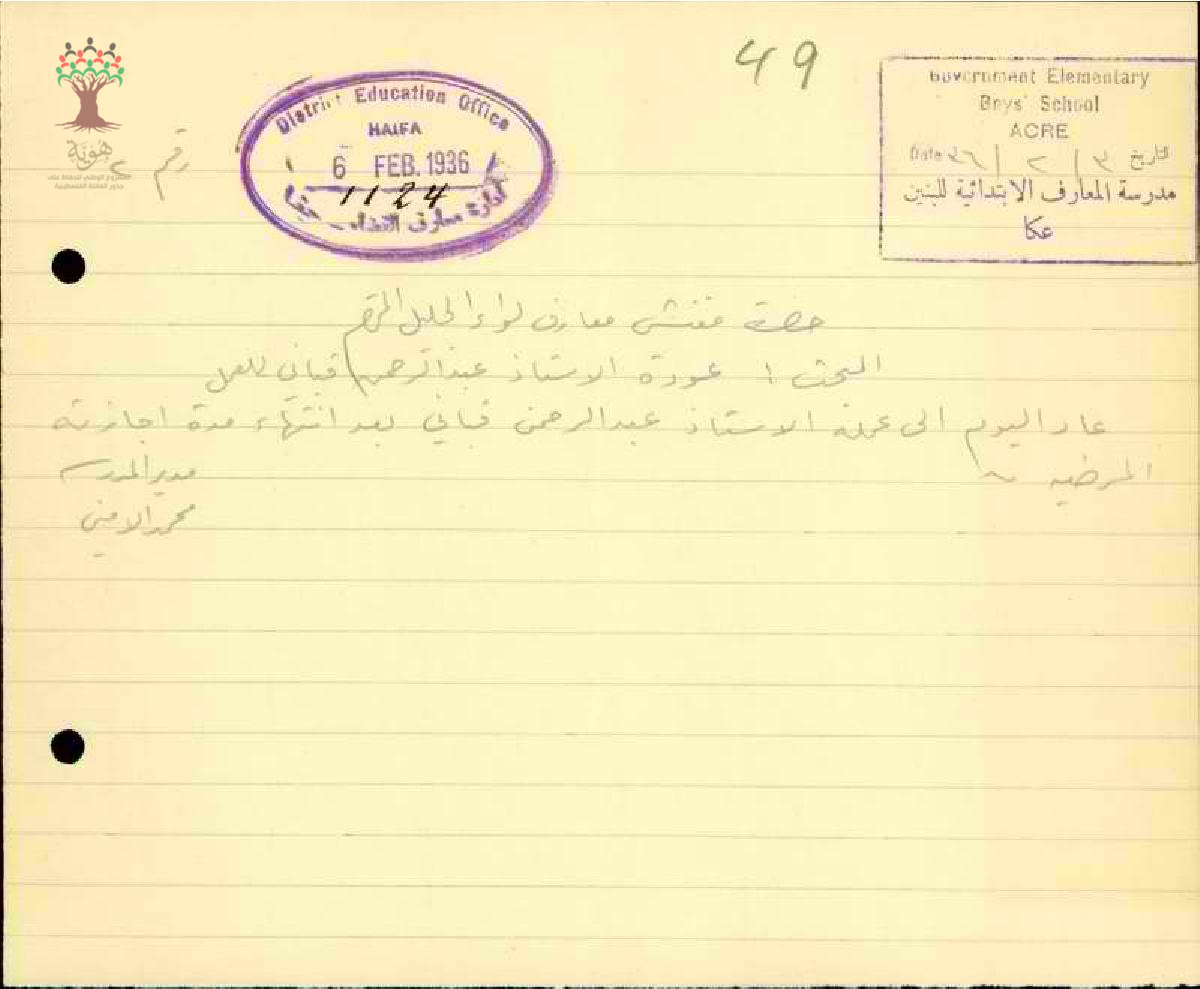 49
Government Elementary
Boys' School
ACRE
Date ٣٦ / ٢ / ٣ التاريخ
مدرسة المعارف الابتدائية للبنين
عكا
District Education Office
HAIFA
6 FEB. 1936
1124
ادارة معارف اللواء حيفا
رقم
هوية
المشروع الوطني للحفاظ على
جذور العائلة الفلسطينية
حضرة مفتش معارف لواء الجليل المحترم
المبحث : عودة الاستاذ عبدالرحمن قباني للعمل
عاد اليوم الى عمله الاستاذ عبدالرحمن قباني بعد انتهاء مدة اجازته
المرضيه
مدير المدرسه
محمد الامين